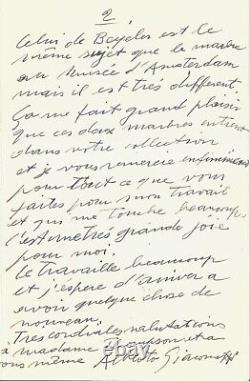 2.
Celui de Bcyeles est le
même sujet que le marbre
au Musée d'Amsterdam
mais il est très different.
Ça me fait grand plaisir
que ces deux marbres entrent
dans votre collection
et je vous remercie infiniment
pour tout ce que vous
faites pour mon travail
et qui me touche beaucoup
c'est une très grande joie
pour moi.
Je travaille beaucoup
et j'espère d'arriver a
avoir quelque chose de
nouveau.
Tres cordiales salutations
à madame et a
vous même Alberto Giacometti
ebay